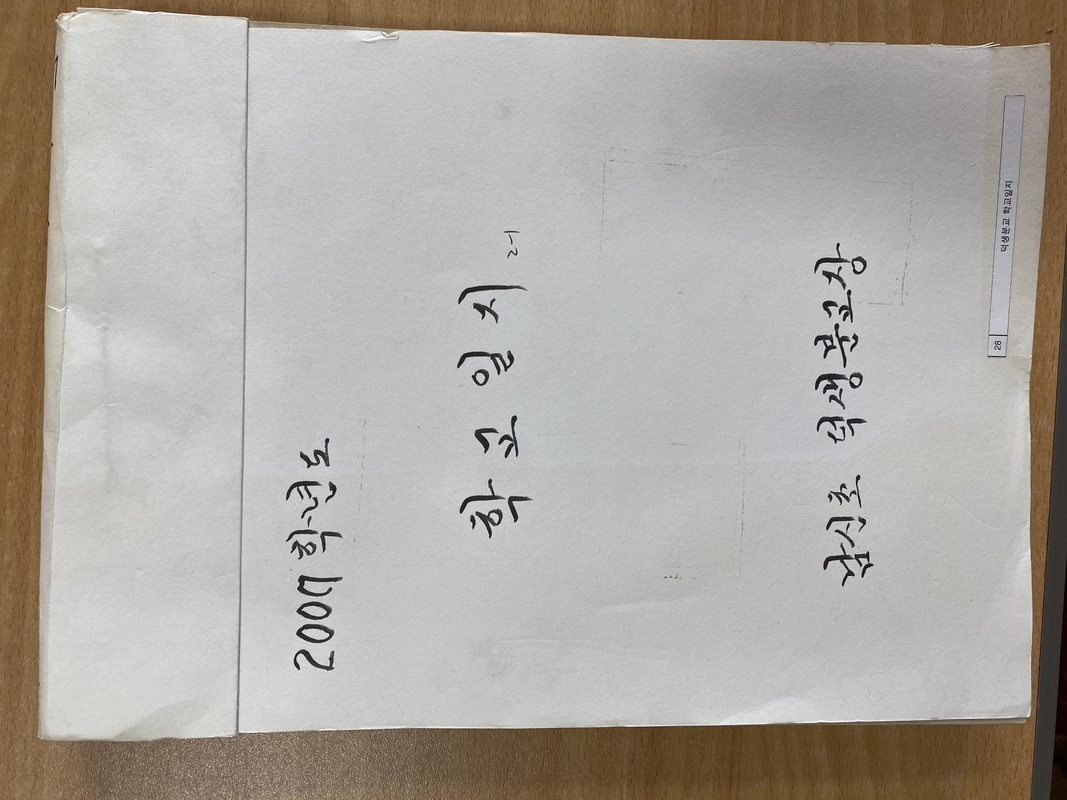 2007 학년도
학교일지
남신초 덕생분교장
28 덕생분교 학교일지